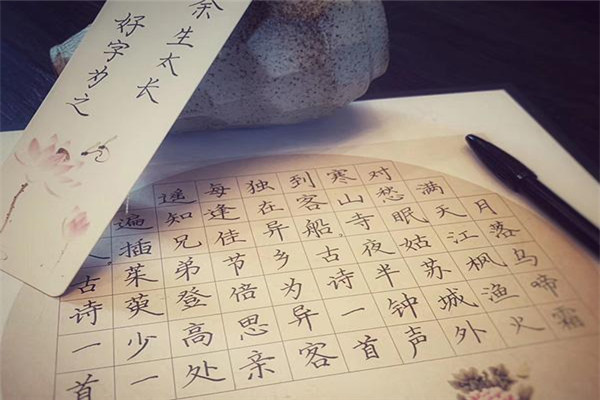 余生太长
好字为之
月落乌啼霜
满天江枫渔火
对愁眠姑苏城外
寒山寺夜半钟声
到客船古诗一首
独在异乡为异客
每逢佳节倍思亲
遥知兄弟登高处
遍插茱萸少一
古诗一首